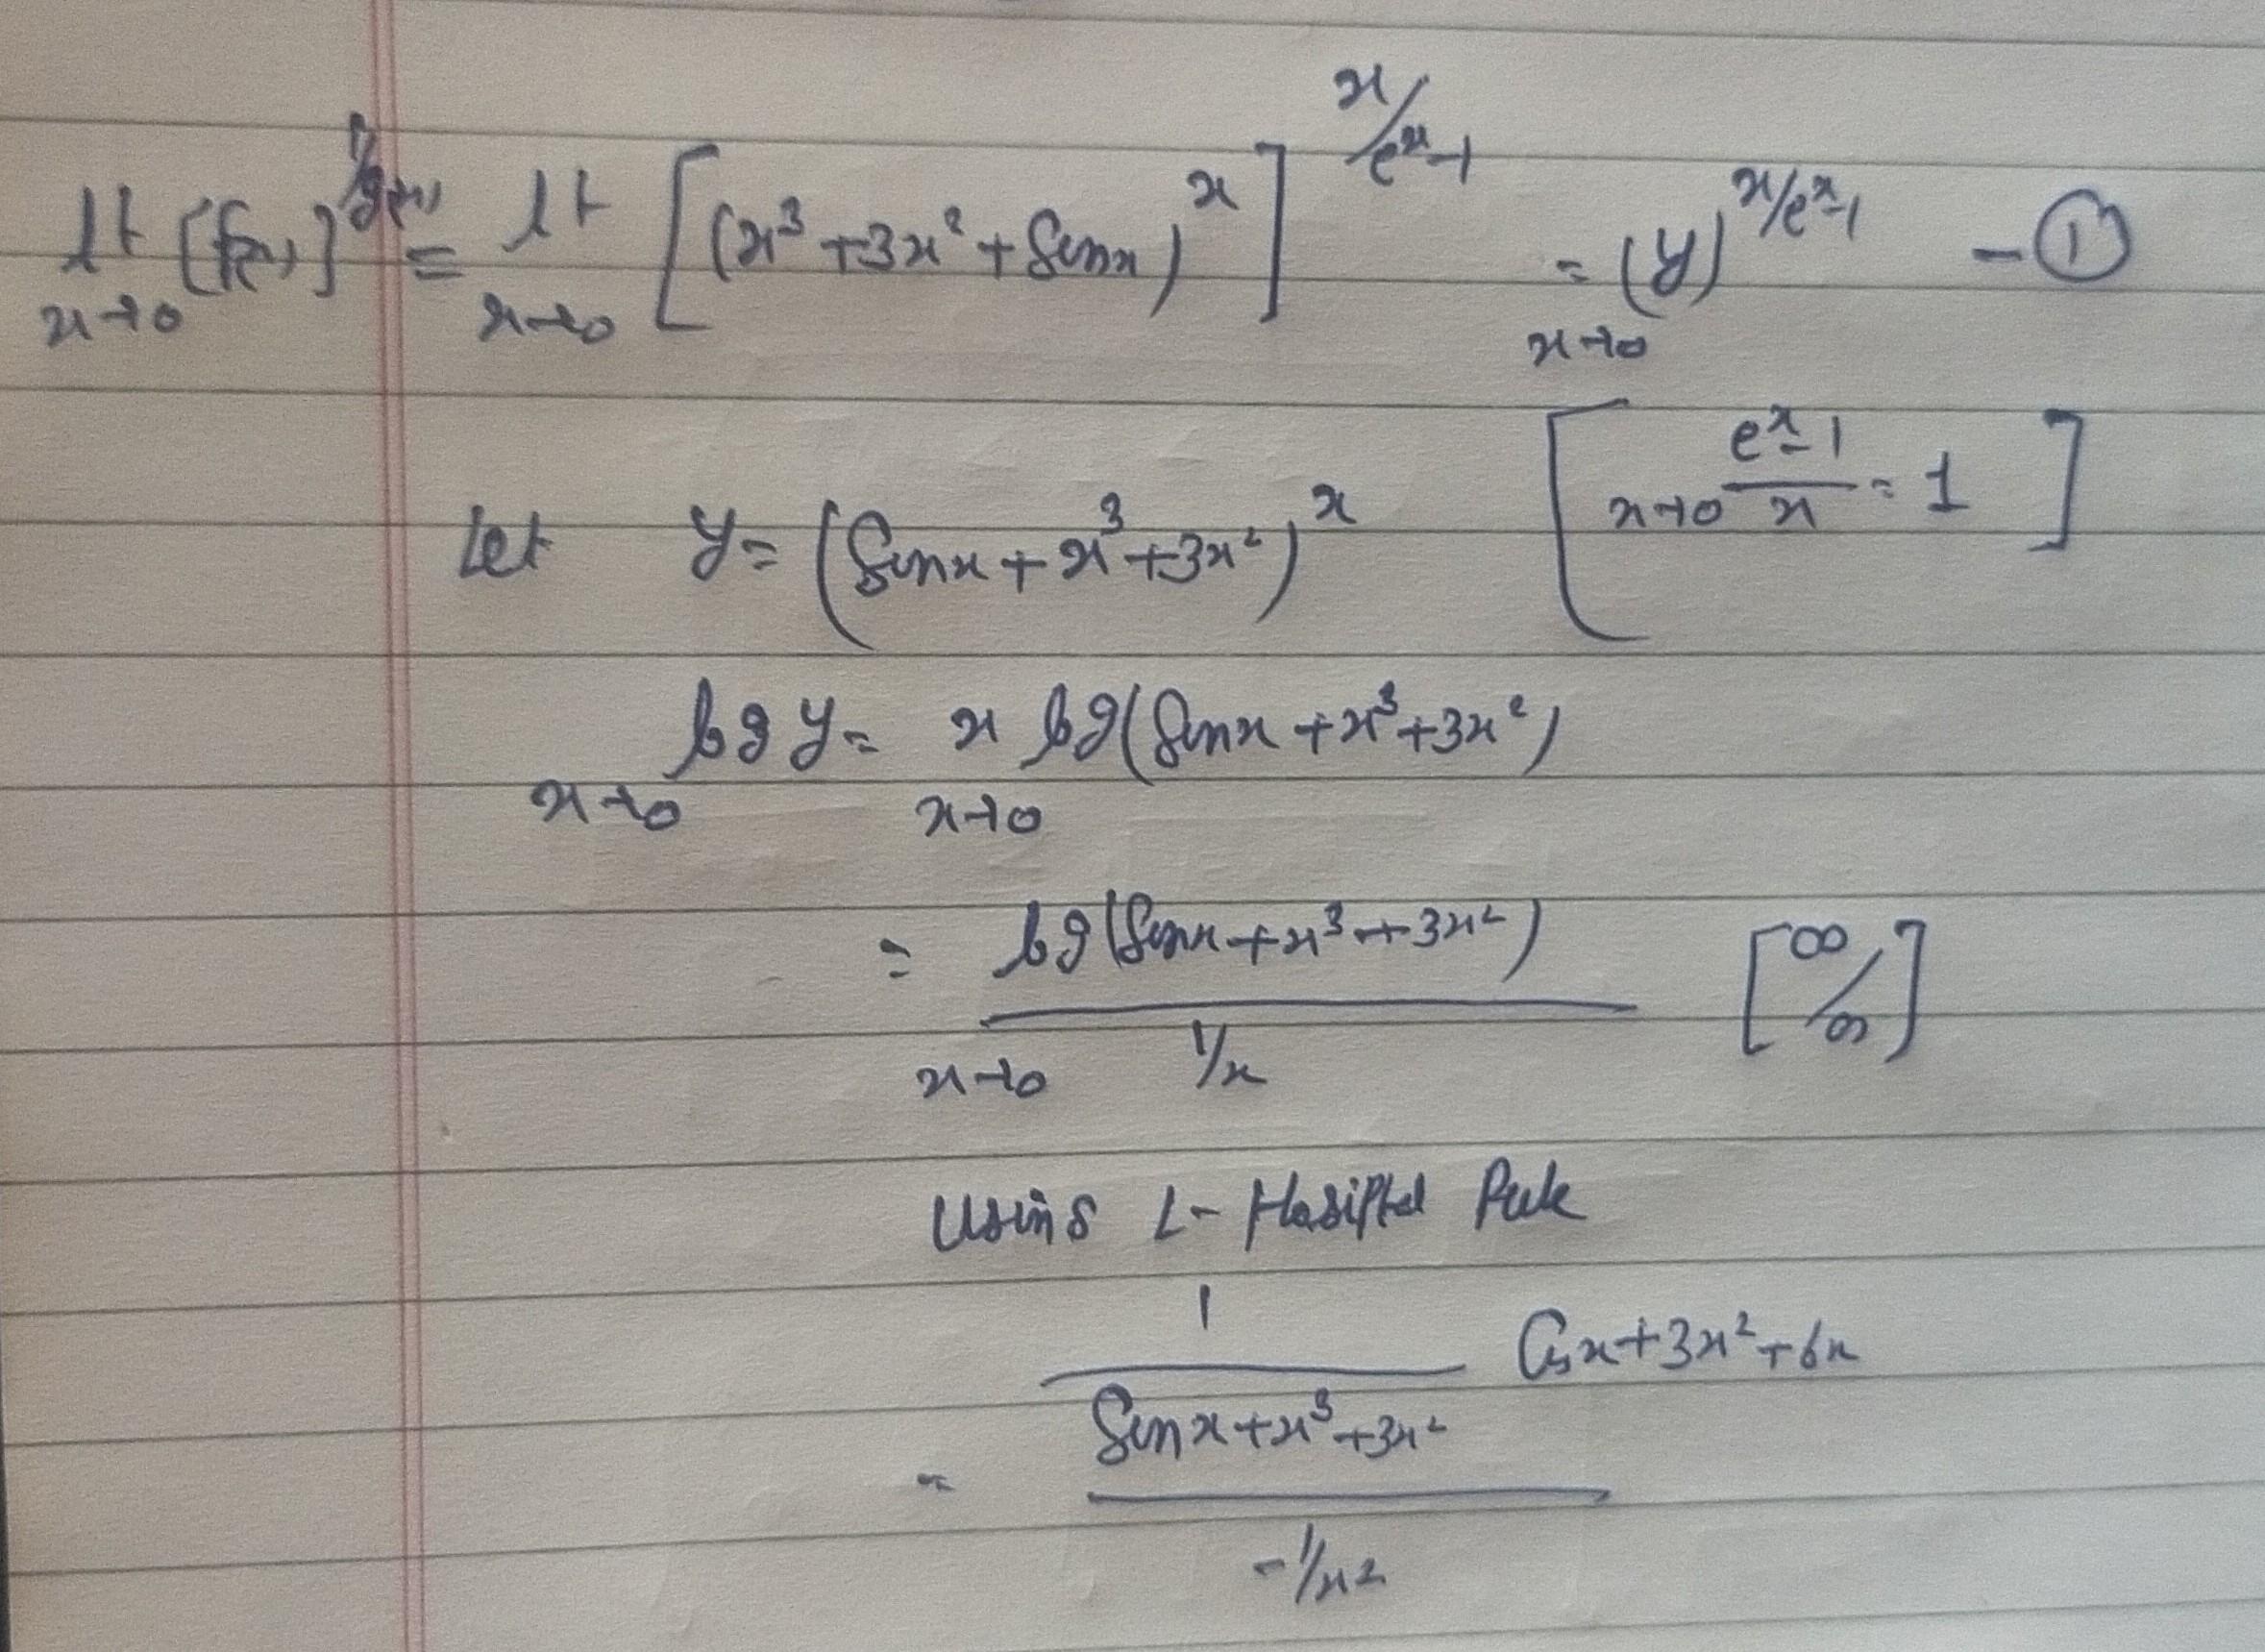 lt x→0 [f(x)]^1/g(x) = lt x→0 [(x³+3x²+Sinx)^x]^x/e^x-1 = x→0 (y)^x/e^x-1 - ①
Let y = (Sinx+x³+3x²)^x [x→0 e^x-1/x = 1]
x→0 log y = x→0 x log(Sinx+x³+3x²)
= x→0 log(Sinx+x³+3x²) / 1/x [∞/∞]
Using L-Hospital Rule
= 1/Sinx+x³+3x² Cosx+3x²+6x / -1/x²